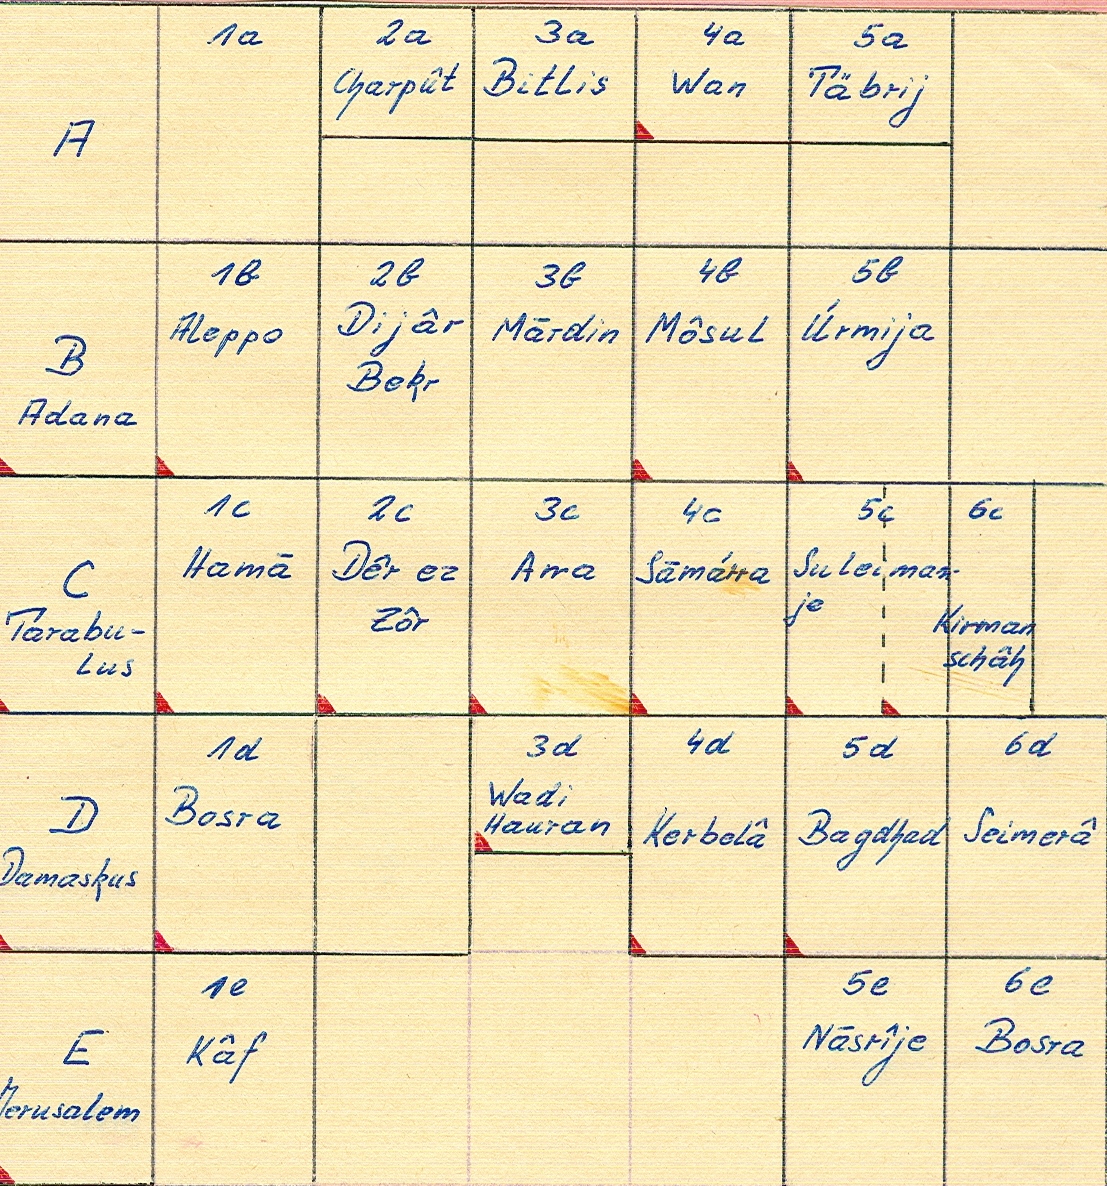 1a 2a 3a 4a 5a
Charpût Bitlis Wan Täbrij
A
1b 2b 3b 4b 5b
Aleppo Dijâr Mārdin Môsul Úrmija
B Bekr
Adana
1c 2c 3c 4c 5c 6c
C Hamā Dêr ez Ana Sāmárra Suleiman-
Tarabu- Zôr je Kirman
lus schâh
1d 3d 4d 5d 6d
D Bosra Wadi Kerbelâ Bagdhad Seimerâ
Damaskus Hauran
1e 5e 6e
E Kâf Nāsrîje Bosra
Jerusalem